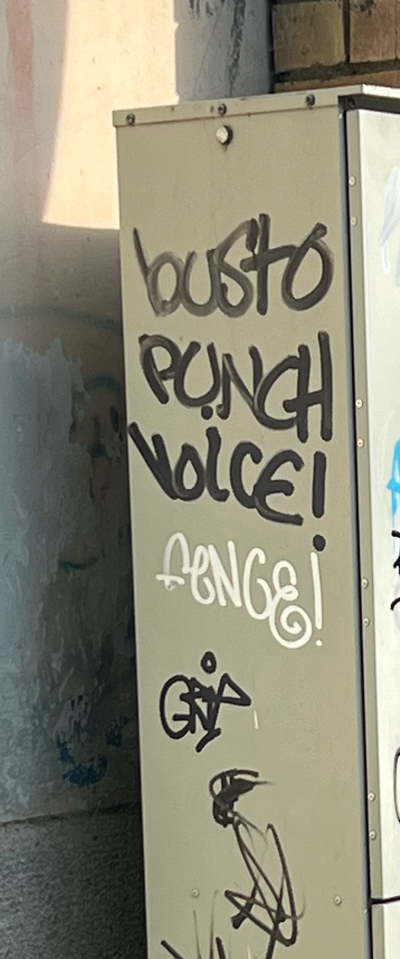 busto
PUNCH
VOICE!
FENCE!
GRIP